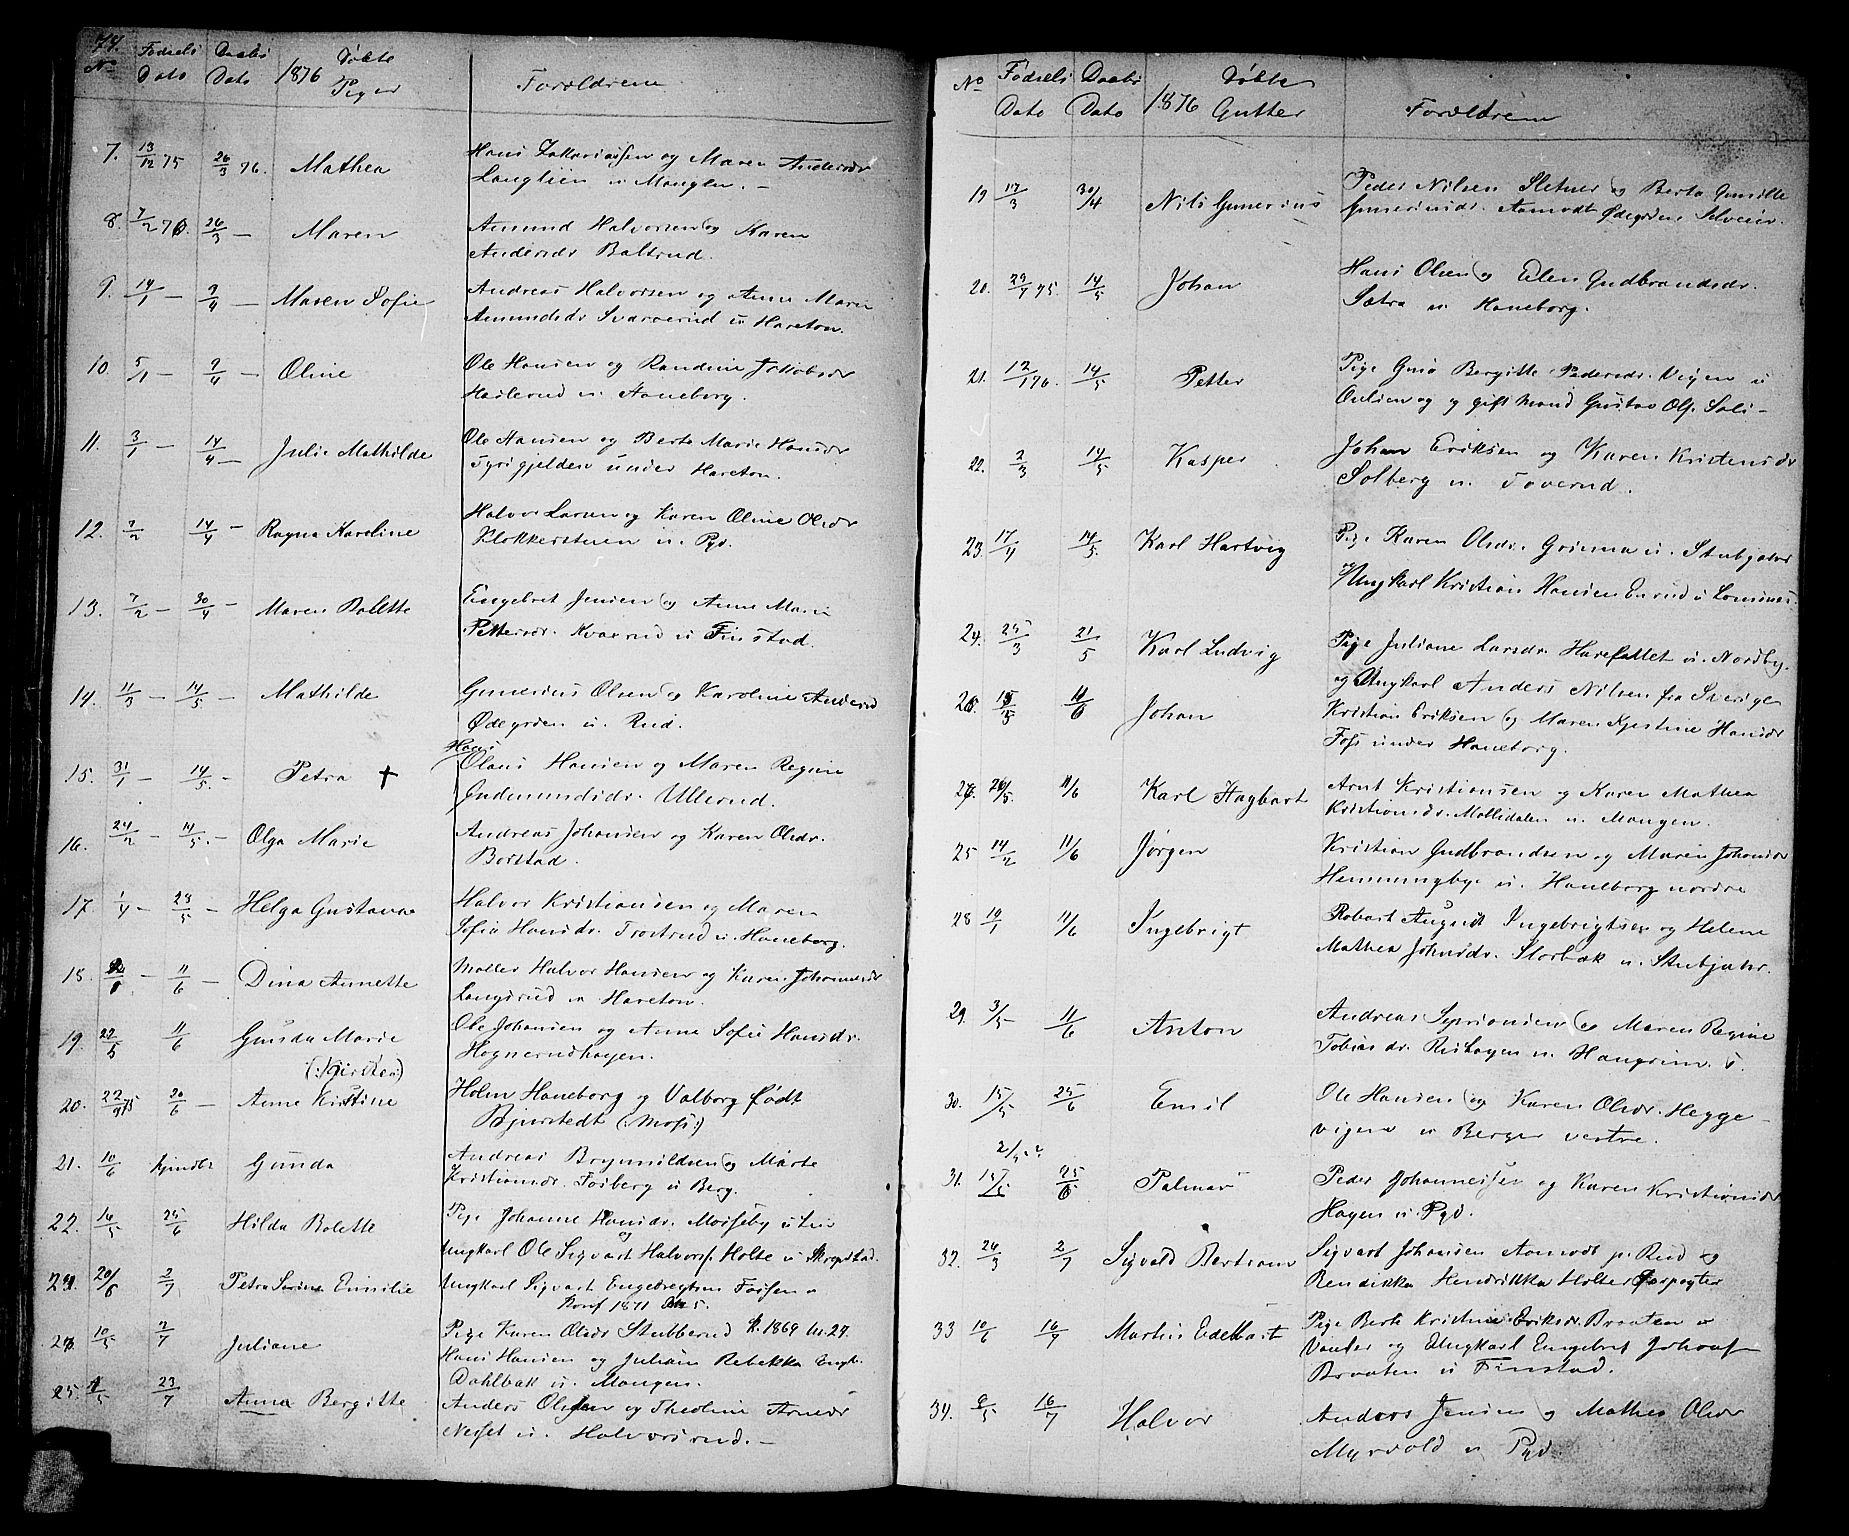 74.
No Fødsels Dato Daabs Dato 1876 Døbte Piger Forældrene
7. 13/12 75 26/3 76. Mathea Hans Zakariassen og Maren Andersdr
Langlien u. Mangen. -
8. 7/2 76. 26/3 - Maren Amund Halvorsen og Karen
Andersdr Baltrud.
9. 14/1 - 9/4 - Maren Sofie Andreas Halvorsen og Anne Maren
Amundsdr Svarverud u Hareton.
10. 5/1 - 9/4 - Oline Ole Hansen og Randine Jakobsdr
u. Haneborg.
11. 3/1 - 14/4 - Julie Mathilde Ole Hansen og Berte Marie Hansdr
Tyrigjelden under Hareton.
12. 7/2 14/4 - Ragna Karoline Halvor Larsen og Karen Oline Olsdr
Klokkerstuen u. Pyd.
13. 7/2 - 30/4 - Maren Bolette Engebret Jensen og Anne Marie
Pettersdr. Kvaerud u Finstad.
14. 11/3 - 14/5 - Mathilde Gunerius Olsen og Karoline Andersd
Ødegården u. Rud.
15. 31/1 - 14/5. - Petra + Hans
Olaus Hansen og Maren Regine
Gudmundsdr. Ullerud.
16. 24/2 - 14/5. - Olga Marie Andreas Johansen og Karen Olsdr.
Borstad.
17. 1/4 - 28/5 - Helga Gustava Halvor Kristiansen og Maren
Sofie Hansdr. Trostrud u. Haneborg.
18. - 11/6 - Dina Annette Møller Halvor Hansen og Karen Johannesdr
Langsrud u Hareton.
19. 27/5 11/6 Gunda Marie Ole Johansen og Anne Sofie Hansdr.
Hognerudhagen.
20. 22/9 75 20/6 - Anne Kirstine Holm Haneborg og Valborg født
Bjerstedt (: Moss:)
21. 10/6 Gunda Andreas Brynnildsen og Marte
Kristiansdr. Fosberg u Berg.
22. 16/5 25/6 Hilda Bolette Pige Johanne Hansdr. Moseby u
og
Ungkarl Ole Sigvart Halvors. Holte u Skrepstad.
24. 20/6 2/7 Petra Emilie Ungkarl Sigvart Engebregtsen Fossen u
Konf 1871 No 5.
Pige Karen Olsdr Stubberud k. 1869 No. 27.
10/5 2/7 Juliane Hans Hansen og Juliane Rebekka Engb.
Dahlbak u. Mangen.
25. 4/5 23/7 Anna Bergitte Anders Olssen og Theoline Arnesdr
Neset u. Halvorsrud. -
No Fødsels Dato Daabs Dato 1876 Døbte Gutter Forældrene
19 17/3 30/4 Nils Gunerius Peder Nilsen Sletner og Berte Gunille
Gunerinsdr. Aamodt Ødegården Solveier.
20. 29/7 75. 14/5 Johan Hans Olsen og Elen Gudbrandsdr.
Sætra u Haneborg.
21. 12/1 76. 14/5 Petter Pige Bergitte Pedersdr. Vigen u
og gift Mand Gustav Ols. Soli -
22. 2/3 14/5 Kasper Johan Eriksen og Karen Kristensdr
Solberg u. Toverud.
23. 17/4 14/5 Karl Hartvig Pige Karen Olsdr. Grinna u. Stubjahr
Ungkarl Kristian Hansen Enerud u
24. 25/3 21/5 Karl Ludvig Pige Juliane Larsdr. Harefallet u. Nordby.
og Ungkarl Anders Nilsen fra Sverige
26. 15/3 11/6 Johan Kristian Eriksen og Maren Kjestine Hansdr
Foss under Haneborg.
27. 26/5. 11/6 Karl Hagbart Arnt Kristiansen og Karen Mathea
Kristiansdr. Møllidalen u. Mangen.
25 14/2 11/6 Jørgen Kristian Gudbrandsen og Maren Johansdr
Hemmingbye u. Haneborg nordre
28 19/1 11/6 Ingebrigt Robert August Ingebrigtsen og Helene
Mathea Johnsdr. Storbæk u. Stubjahr.
29. 3/5 - 11/6 Anton Andreas Syvrionsen og Maren Regine
Tobias dr. Rishagen u. Hangrim. v.
30. 15/5 25/6 Emil Ole Hansen og Karen Olsdr. Hegge-
vigen u Berger vestre.
31. 15/5 25/6 Palmar Peder Johannessen og Karen Kristiansdr
Hagen u. Pyd.
32. 26/3 2/7 Sigvald Bertram Sigvart Johansen Aamodt p. Rud og
Bendikka Hendrikka Holter
33 10/6 16/7 Martin Edelbart Pige Berte Kristine Eriksdr. Braaten u
og Ungkarl Engebret Johans
Braaten u Finstad.
34. 6/5 16/7 Halvor Anders Jensen og Mathea Olsdr
Myrvold u Pyd.